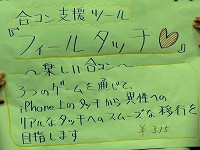 合コン支援ツール
『フィールタッチ♡』
〜楽しい合コン〜
3つのゲームを通じて、
iPhone上のタッチから異性への
リアルなタッチへのスムーズな移行を
目指します
￥315